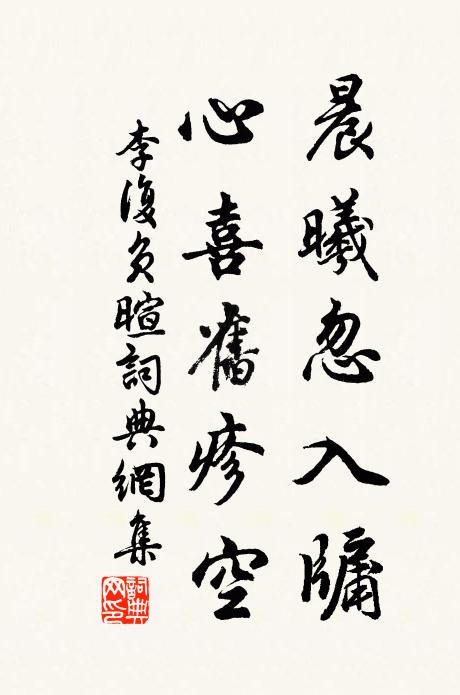 晨曦忽入牖
心喜舊疹空
李復負暄詞典網集
詞典网印